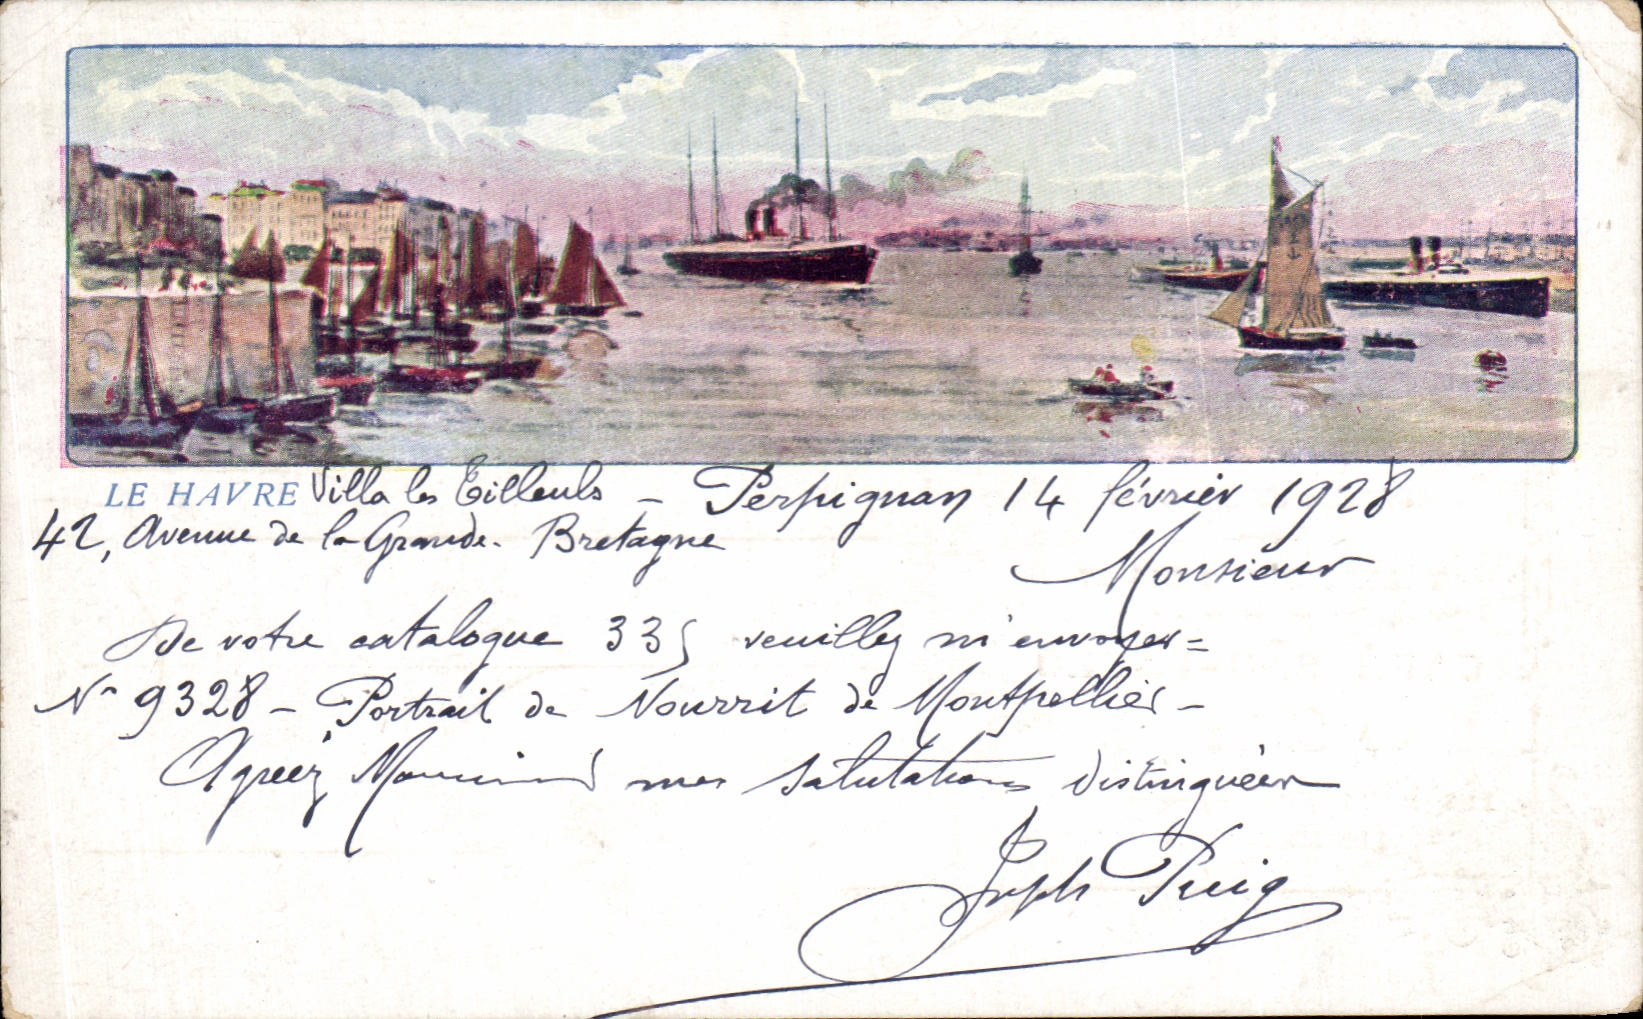 LE HAVRE Villa les Tilleuls – Perpignan 14 février 1928
42, Avenue de la Grande-Bretagne
Monsieur
De votre catalogue 335 veuillez m'envoyer =
N° 9328 – Portrait de Nourrit de Montpellier –
Agréez Monsieur mes salutations distinguées
Joseph Puig